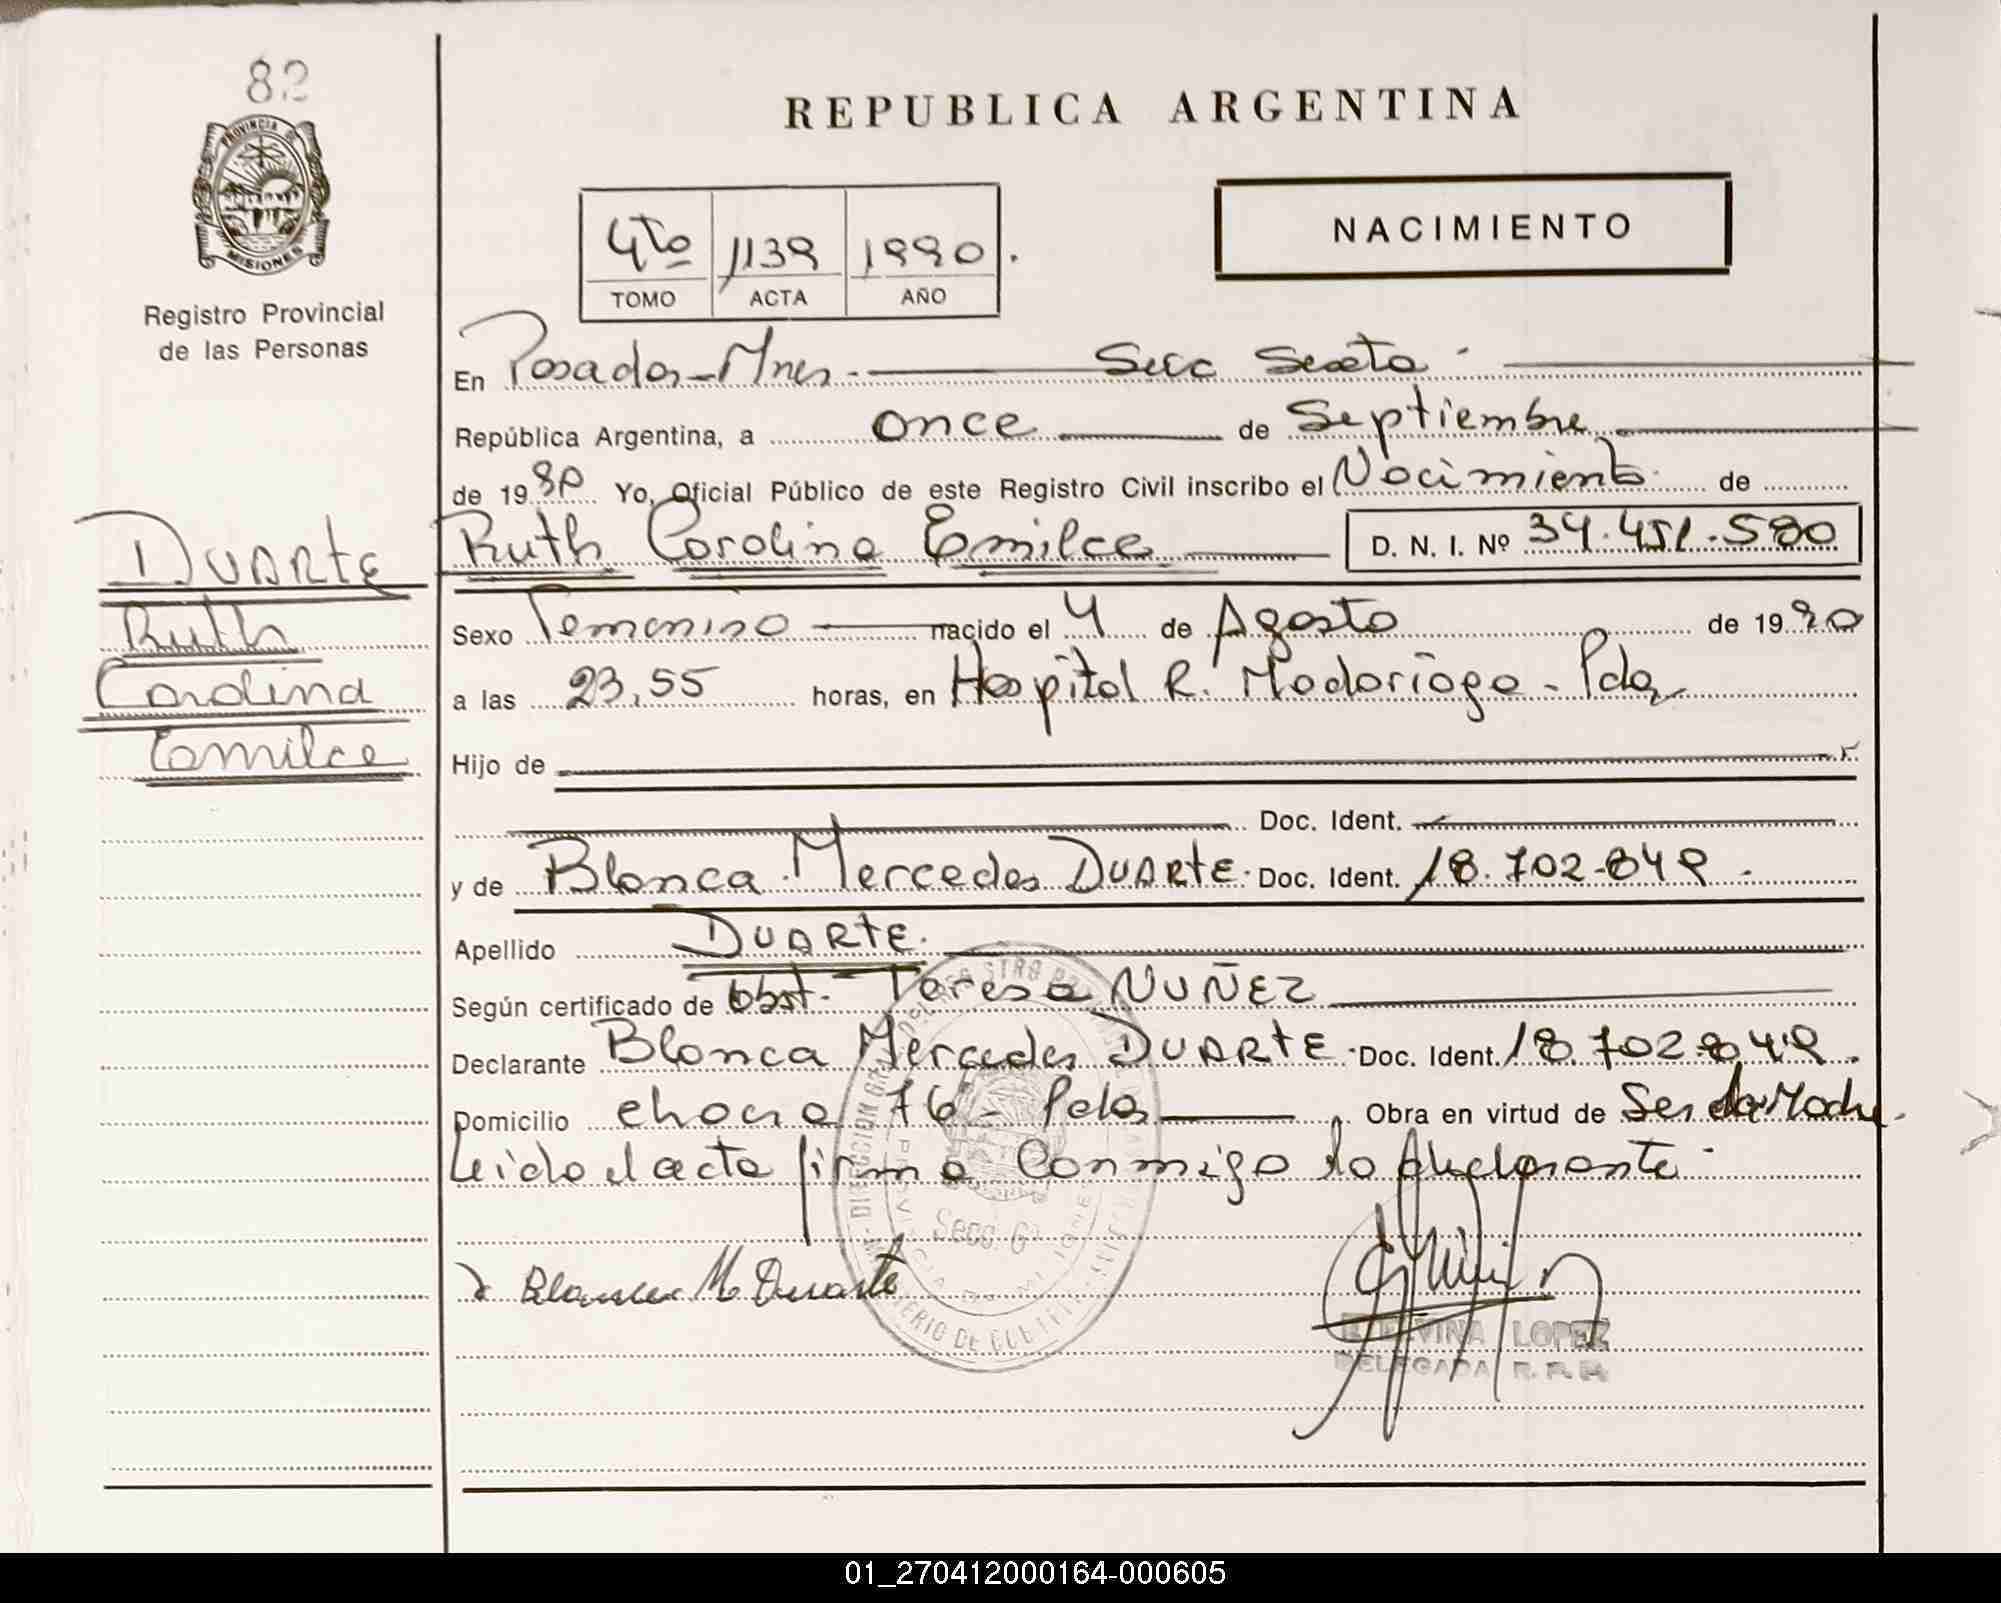 82
REPUBLICA ARGENTINA
PROVINCIA DE
MISIONES
Registro Provincial
de las Personas
4to 1139 1990.
TOMO ACTA AÑO
NACIMIENTO
En Posadas-Mnes.- Secc Sexta.
República Argentina, a once de Septiembre
de 1990 Yo, Oficial Público de este Registro Civil inscribo el Nacimiento de
DUARTE Ruth Carolina Emilce D. N. I. Nº 34.451.580
Ruth
Sexo Femenino nacido el 4 de Agosto de 1990
Carolina
a las 23,55 horas, en Hospital R. Madariaga - Pdas
Emilce
Hijo de
Doc. Ident.
y de Blanca Mercedes DUARTE. Doc. Ident. 18.702.849.
Apellido DUARTE.
Según certificado de Obst. Teresa NUÑEZ
Declarante Blanca Mercedes DUARTE. Doc. Ident. 18.702.849.
Domicilio chacra 76 - Pdas Obra en virtud de Ser la Madre.
Leido el acta firma conmigo la declarante.
Secc. 6ª
Blanca M Duarte
LOPEZ
DELEGADA R. P. P.
01_270412000164-000605